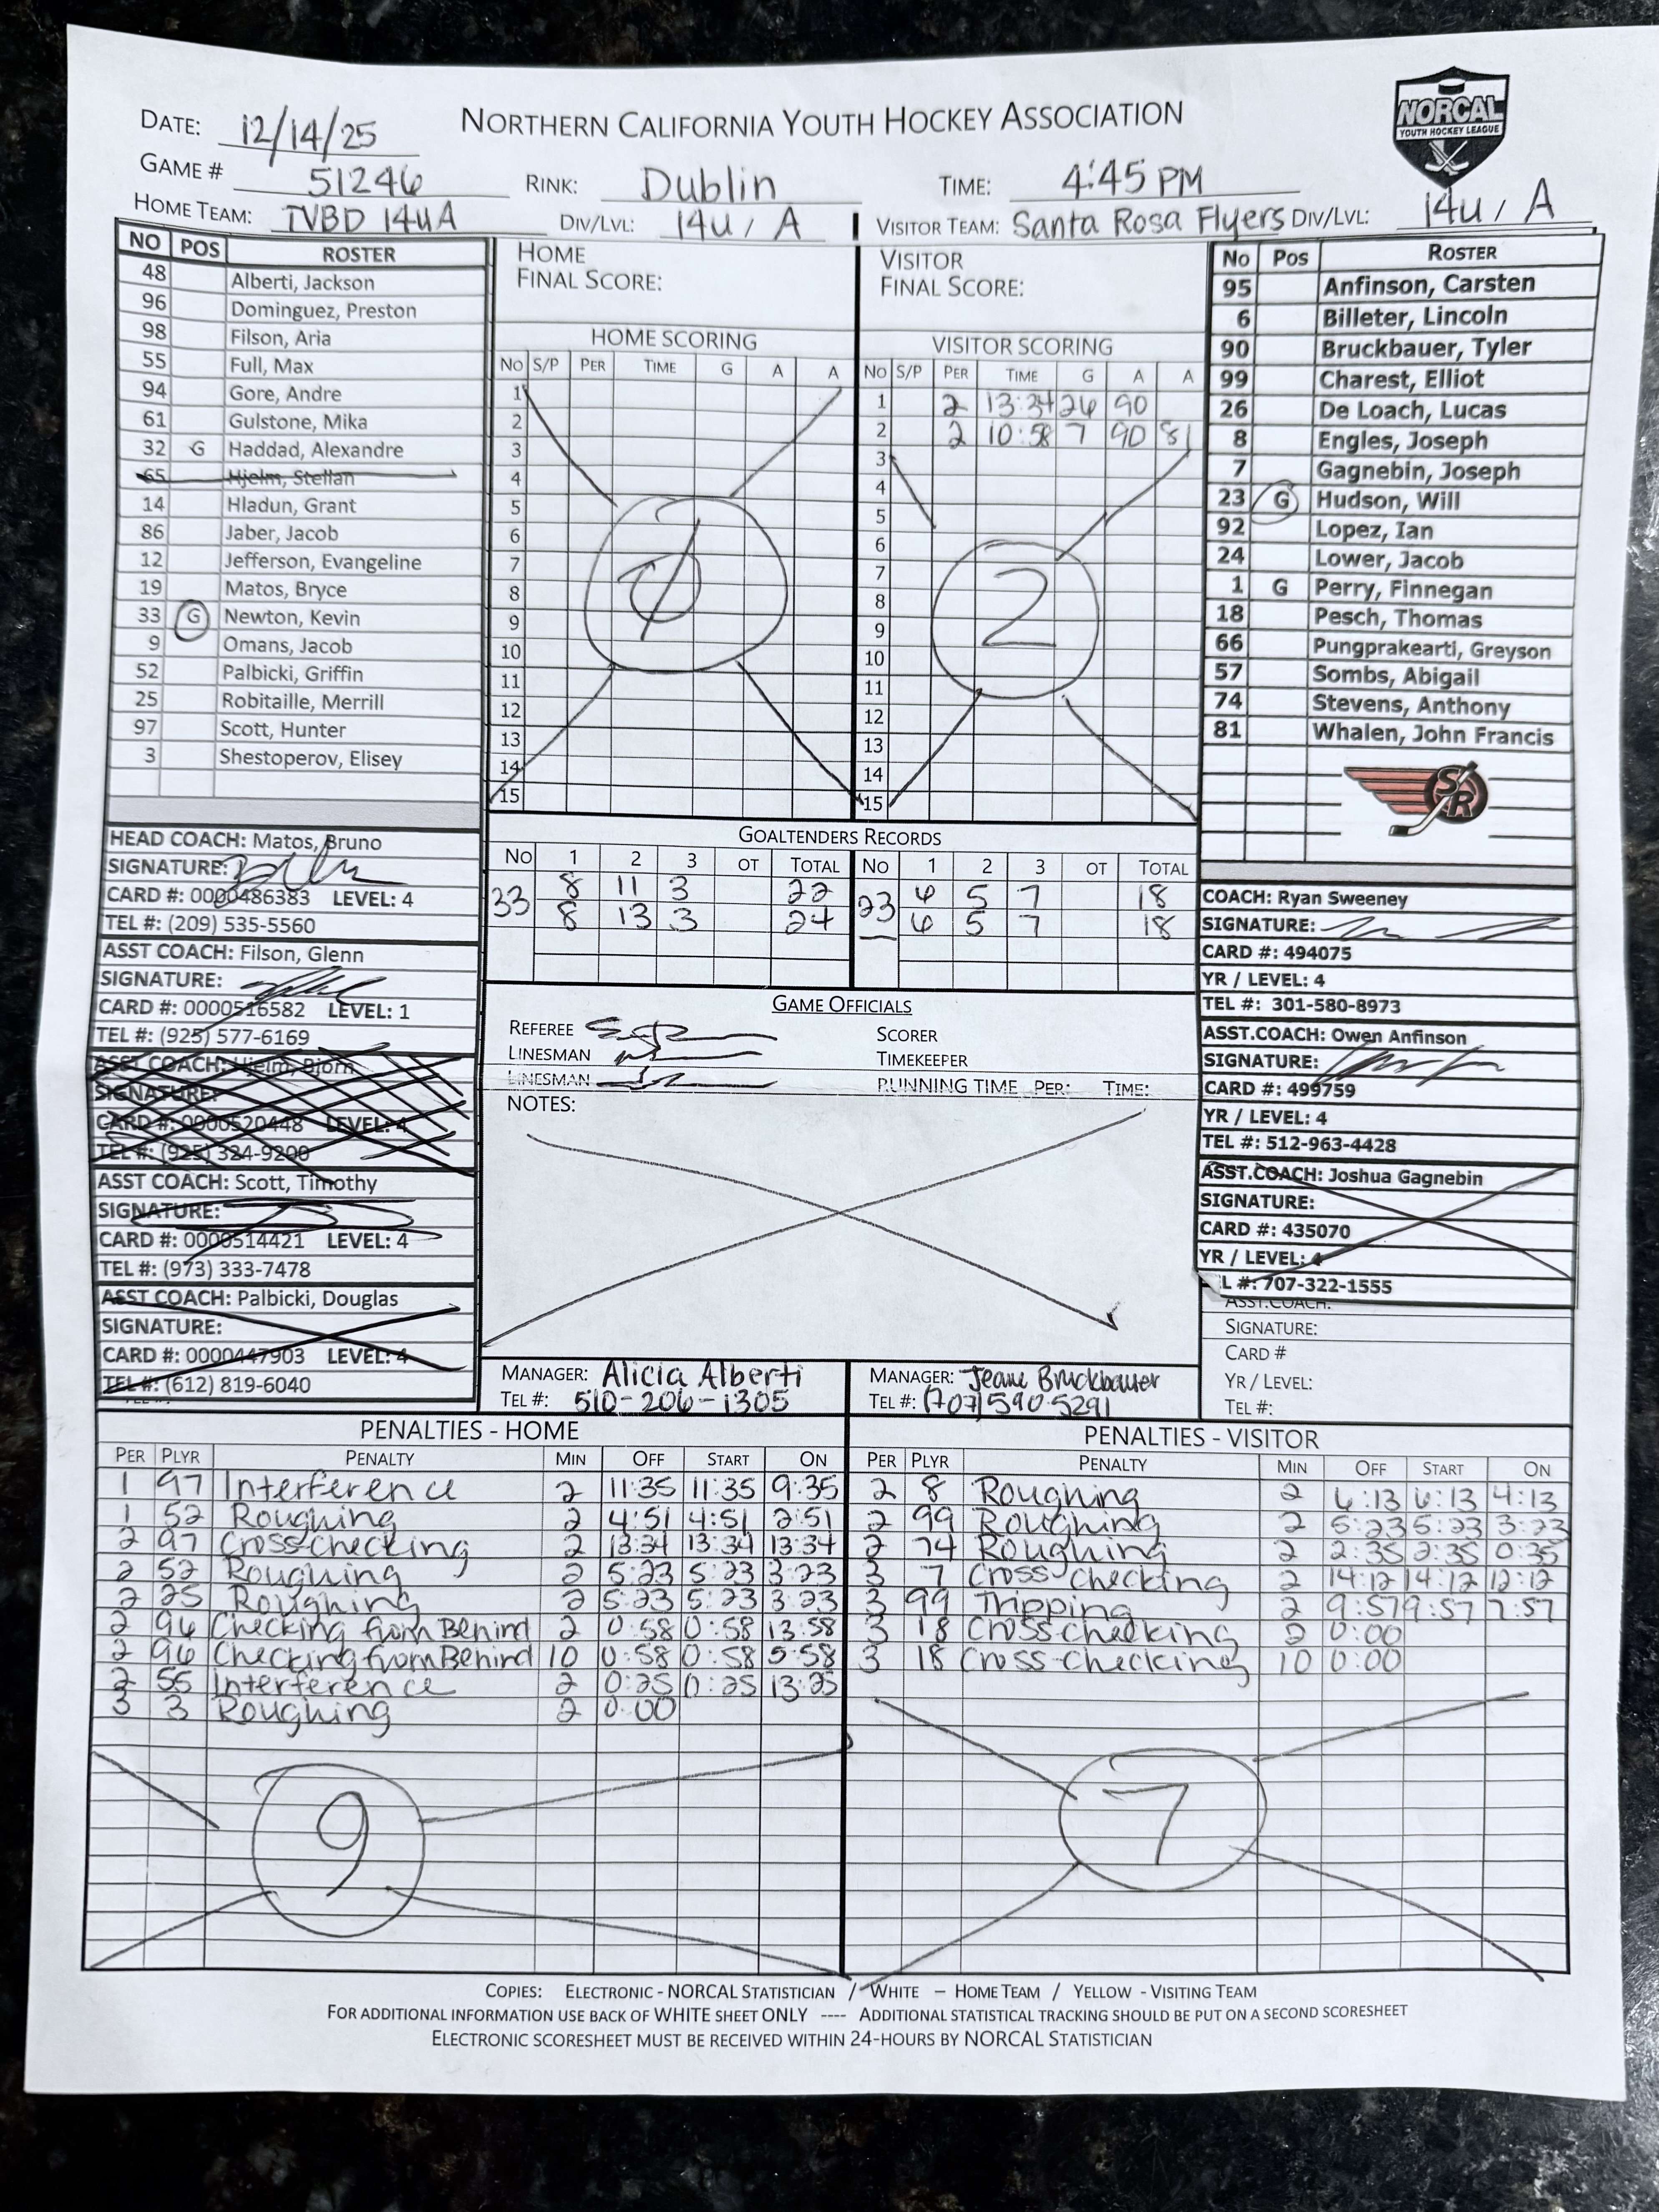 NORTHERN CALIFORNIA YOUTH HOCKEY ASSOCIATION
NORCAL
YOUTH HOCKEY LEAGUE
DATE: 12/14/25
GAME # 51246 RINK: Dublin TIME: 4:45 PM
HOME TEAM: TVBD 14UA DIV/LVL: 14U / A VISITOR TEAM: Santa Rosa Flyers DIV/LVL: 14U / A
NO POS ROSTER
48 Alberti, Jackson
96 Dominguez, Preston
98 Filson, Aria
55 Full, Max
94 Gore, Andre
61 Gulstone, Mika
32 G Haddad, Alexandre
65 Hjelm, Stellan
14 Hladun, Grant
86 Jaber, Jacob
12 Jefferson, Evangeline
19 Matos, Bryce
33 G Newton, Kevin
9 Omans, Jacob
52 Palbicki, Griffin
25 Robitaille, Merrill
97 Scott, Hunter
3 Shestoperov, Elisey
HEAD COACH: Matos, Bruno
SIGNATURE:
CARD #: 0000486383 LEVEL: 4
TEL #: (209) 535-5560
ASST COACH: Filson, Glenn
SIGNATURE:
CARD #: 0000516582 LEVEL: 1
TEL #: (925) 577-6169
ASST COACH: Hjelm, Bjorn
SIGNATURE:
CARD #: 0000520448 LEVEL: 4
TEL #: (925) 324-9200
ASST COACH: Scott, Timothy
SIGNATURE:
CARD #: 0000514421 LEVEL: 4
TEL #: (973) 333-7478
ASST COACH: Palbicki, Douglas
SIGNATURE:
CARD #: 0000447903 LEVEL: 4
TEL #: (612) 819-6040
HOME
FINAL SCORE:
HOME SCORING
NO S/P PER TIME G A A
1
2
3
4
5
6
7
8
9
10
11
12
13
14
15
0
VISITOR
FINAL SCORE:
VISITOR SCORING
NO S/P PER TIME G A A
1 2 13:34 26 90
2 2 10:58 7 90 81
3
4
5
6
7
8
9
10
11
12
13
14
15
2
GOALTENDERS RECORDS
NO 1 2 3 OT TOTAL NO 1 2 3 OT TOTAL
33 8 11 3 22 23 6 5 7 18
8 13 3 24 6 5 7 18
GAME OFFICIALS
REFEREE SCORER
LINESMAN TIMEKEEPER
LINESMAN RUNNING TIME PER: TIME:
NOTES:
MANAGER: Alicia Alberti
TEL #: 510-206-1305
MANAGER: Jeane Bruckbauer
TEL #: (707) 590-5291
No Pos ROSTER
95 Anfinson, Carsten
6 Billeter, Lincoln
90 Bruckbauer, Tyler
99 Charest, Elliot
26 De Loach, Lucas
8 Engles, Joseph
7 Gagnebin, Joseph
23 G Hudson, Will
92 Lopez, Ian
24 Lower, Jacob
1 G Perry, Finnegan
18 Pesch, Thomas
66 Pungprakearti, Greyson
57 Sombs, Abigail
74 Stevens, Anthony
81 Whalen, John Francis
SR
COACH: Ryan Sweeney
SIGNATURE:
CARD #: 494075
YR / LEVEL: 4
TEL #: 301-580-8973
ASST.COACH: Owen Anfinson
SIGNATURE:
CARD #: 499759
YR / LEVEL: 4
TEL #: 512-963-4428
ASST.COACH: Joshua Gagnebin
SIGNATURE:
CARD #: 435070
YR / LEVEL: 4
L #: 707-322-1555
ASST.COACH:
SIGNATURE:
CARD #
YR / LEVEL:
TEL #:
PENALTIES - HOME
PER PLYR PENALTY MIN OFF START ON
1 97 Interference 2 11:35 11:35 9:35
1 52 Roughing 2 4:51 4:51 2:51
2 97 Cross-checking 2 13:34 13:34 13:34
2 52 Roughing 2 5:23 5:23 3:23
2 25 Roughing 2 5:23 5:23 3:23
2 96 Checking from Behind 2 0:58 0:58 13:58
2 96 Checking from Behind 10 0:58 0:58 5:58
2 55 Interference 2 0:25 0:25 13:25
3 3 Roughing 2 0:00
9
PENALTIES - VISITOR
PER PLYR PENALTY MIN OFF START ON
2 8 Roughing 2 6:13 6:13 4:13
2 99 Roughing 2 5:23 5:23 3:23
2 74 Roughing 2 2:35 2:35 0:35
3 7 Cross checking 2 14:12 14:12 12:12
3 99 Tripping 2 9:57 9:57 7:57
3 18 Cross checking 2 0:00
3 18 Cross-checking 10 0:00
7
COPIES: ELECTRONIC - NORCAL STATISTICIAN / WHITE – HOME TEAM / YELLOW - VISITING TEAM
FOR ADDITIONAL INFORMATION USE BACK OF WHITE SHEET ONLY ---- ADDITIONAL STATISTICAL TRACKING SHOULD BE PUT ON A SECOND SCORESHEET
ELECTRONIC SCORESHEET MUST BE RECEIVED WITHIN 24-HOURS BY NORCAL STATISTICIAN